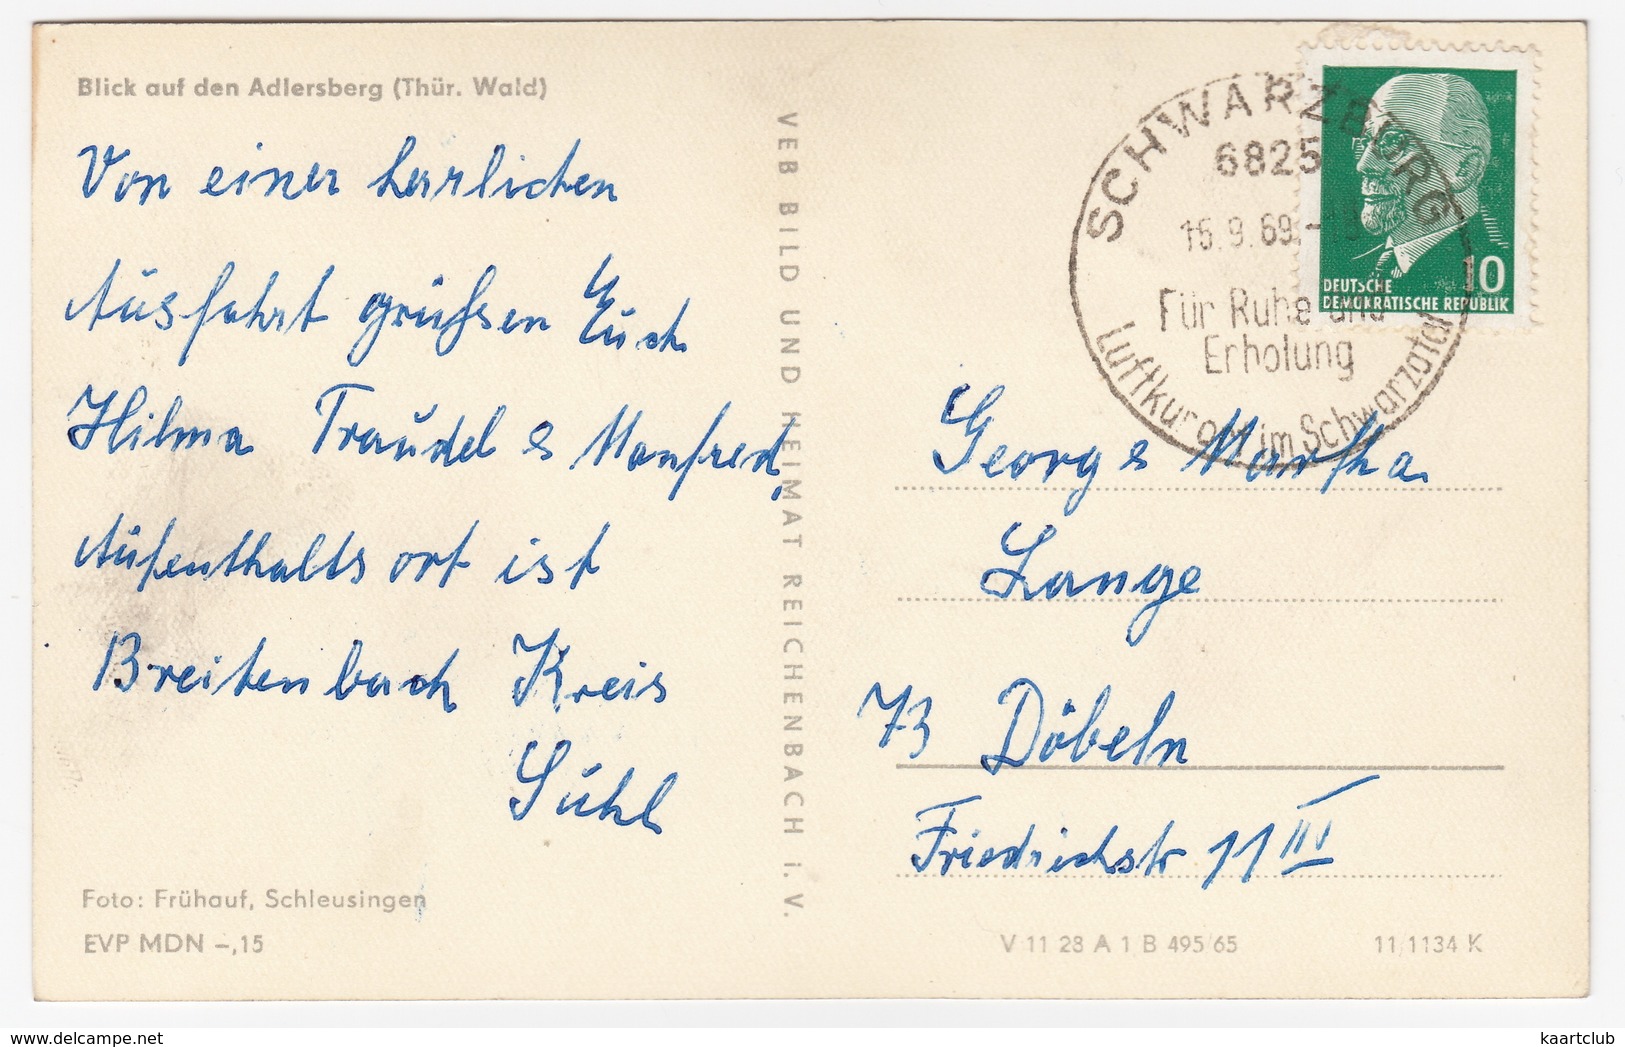 Blick auf den Adlersberg (Thür. Wald)
Von einer herrlichen
Ausfahrt grüßen Euch
Hilma Traudel & Manfred,
Aufenthaltsort ist
Breitenbach Kreis
Suhl
Foto: Frühauf, Schleusingen
EVP MDN -,15
VEB BILD UND HEIMAT REICHENBACH I. V.
SCHWARZBURG
6825
16.9.69.-13
Für Ruhe und
Erholung
Luftkurort im Schwarzatal
10
DEUTSCHE
DEMOKRATISCHE REPUBLIK
Georg & Martha
Lange
73 Döbeln
Friedrichstr 11 IV
V 11 28 A 1 B 495/65
11/1134 K
kaartclub